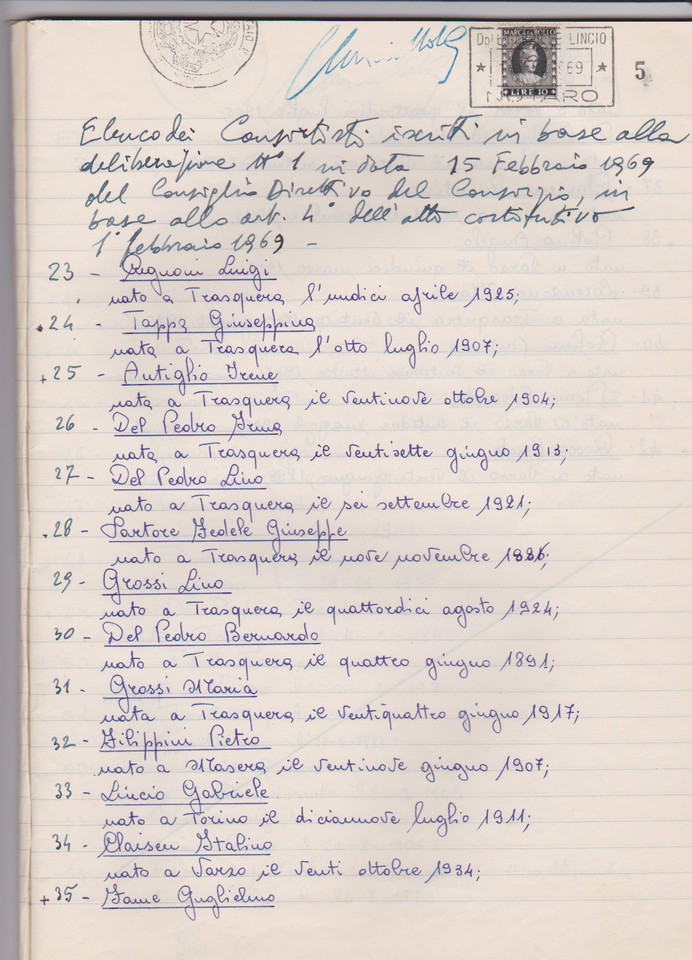 LINCIO
MARCA DA BOLLO
69
LIRE 10
NOTARO
5
Elenco dei Consortisti iscritti in base alla
deliberazione N° 1 in data 15 Febbraio 1969
del Consiglio Direttivo del Consorzio, in
base allo art. 4° dell'atto costitutivo
1° febbraio 1969 -
23 - Pegnoni Luigi
nato a Trasquera l'undici aprile 1925;
24 - Tappa Giuseppina
nata a Trasquera l'otto luglio 1907;
+ 25 - Antiglio Irene
nata a Trasquera il ventinove ottobre 1904;
26 - Del Pedro Irma
nata a Trasquera il ventisette giugno 1913;
27 - Del Pedro Lino
nato a Trasquera il sei settembre 1921;
28 - Sartore Fedele Giuseppe
nato a Trasquera il nove novembre
29 - Grossi Lino
nato a Trasquera il quattordici agosto 1924;
30 - Del Pedro Bernardo
nato a Trasquera il quattro giugno 1891;
31 - Grossi Maria
nata a Trasquera il ventiquattro giugno 1917;
32 - Filippini Pietro
nato a Masera il ventinove giugno 1907;
33 - Lincio Gabriele
nato a Torino il diciannove luglio 1911;
34 - Claisen Italino
nato a Varzo il venti ottobre 1934;
+ 35 - Jame Guglielmo